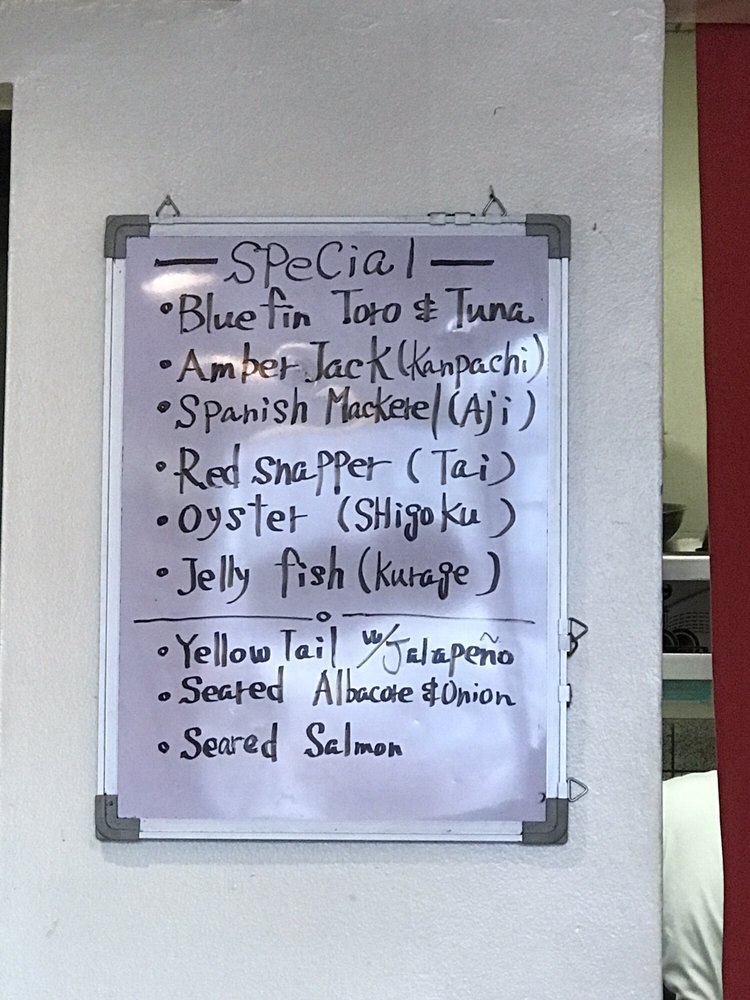 — SPeCial —
• Bluefin Toro & Tuna
• Amber Jack (Kanpachi)
• Spanish Mackerel (Aji)
• Red snapper (Tai)
• Oyster (SHigoku)
• Jelly fish (Kurage)
• Yellow Tail w/ Jalapeño
• Seared Albacore & Onion
• Seared Salmon